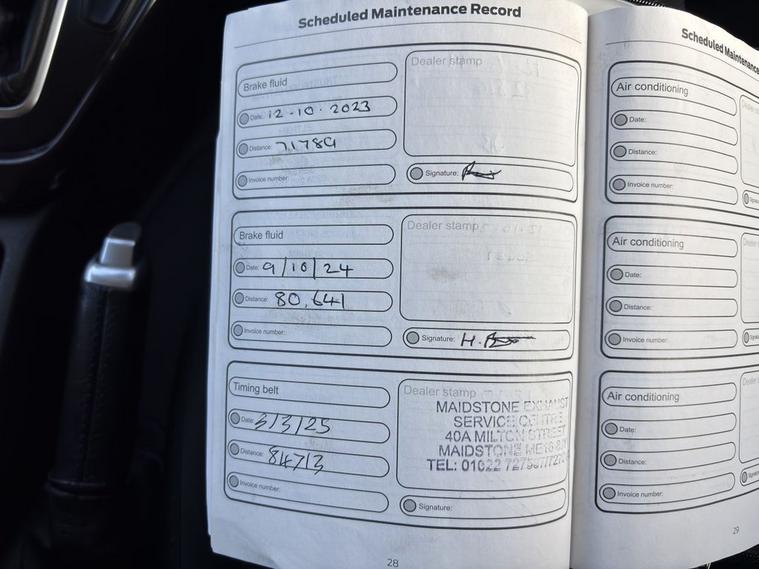 Scheduled Maintenance Record
Brake fluid
Dealer stamp
Date: 12-10-2023
Distance: 71789
Invoice number:
Signature:
Brake fluid
Dealer stamp
Date: 9/10/24
Distance: 80,641
Invoice number:
Signature: H.
Timing belt
Dealer stamp
MAIDSTONE EXHAUST
SERVICE CENTRE
40A MILTON STREET
MAIDSTONE ME16
TEL: 01622
Date: 3/3/25
Distance: 84713
Invoice number:
Signature:
28
Scheduled Maintenance
Air conditioning
Date:
Distance:
Invoice number:
Air conditioning
Date:
Distance:
Invoice number:
Air conditioning
Date:
Distance:
Invoice number:
29